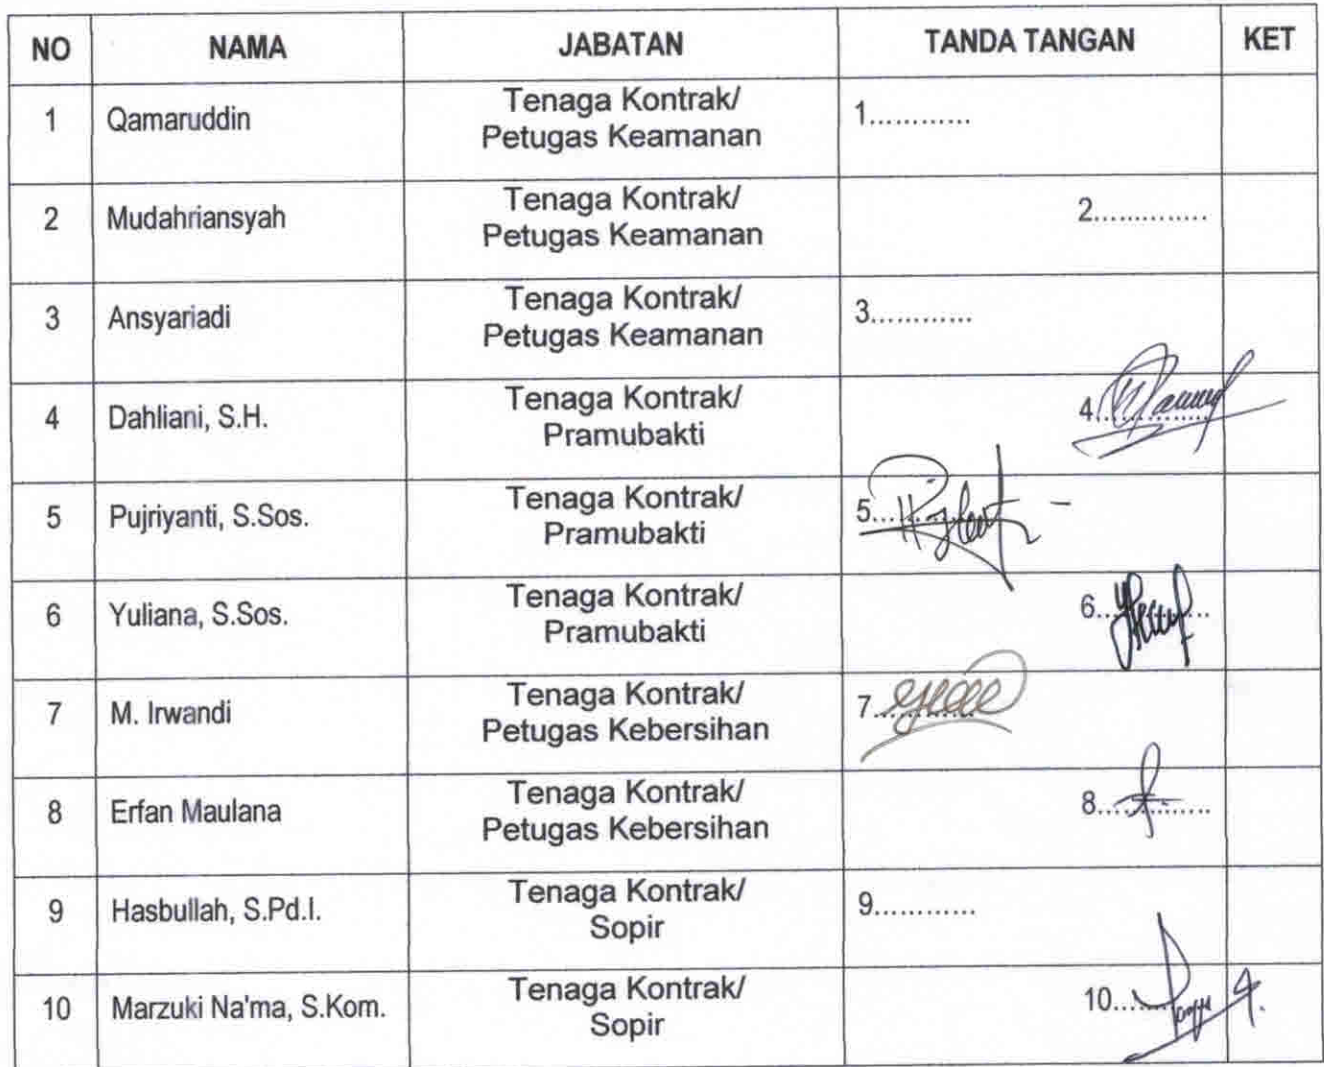 NO NAMA JABATAN TANDA TANGAN KET
1 Qamaruddin Tenaga Kontrak/ 1............
Petugas Keamanan
2 Mudahriansyah Tenaga Kontrak/ 2.............
Petugas Keamanan
3 Ansyariadi Tenaga Kontrak/ 3............
Petugas Keamanan
4 Dahliani, S.H. Tenaga Kontrak/ 4.............
Pramubakti
5 Pujriyanti, S.Sos. Tenaga Kontrak/ 5............
Pramubakti
6 Yuliana, S.Sos. Tenaga Kontrak/ 6.............
Pramubakti
7 M. Irwandi Tenaga Kontrak/ 7............
Petugas Kebersihan
8 Erfan Maulana Tenaga Kontrak/ 8.............
Petugas Kebersihan
9 Hasbullah, S.Pd.I. Tenaga Kontrak/ 9............
Sopir
10 Marzuki Na'ma, S.Kom. Tenaga Kontrak/ 10...........
Sopir